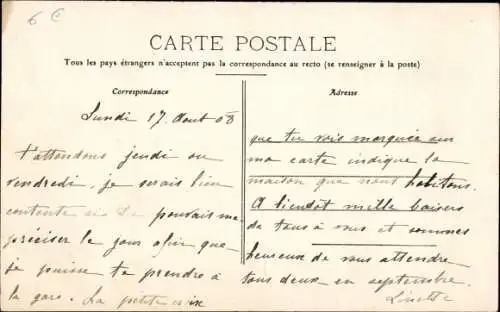 6 €
CARTE POSTALE
Tous les pays étrangers n'acceptent pas la correspondance au recto (se renseigner à la poste)
Correspondance
Lundi 17 Aout 08
t'attendons jeudi ou
vendredi. je serais bien
contente si tu pouvais me
préciser le jour afin que
je puisse te prendre à
la gare. La petite croix
Adresse
que tu vois marquée sur
ma carte indique la
maison que nous habitons.
A bientôt mille baisers
de tous à vous et sommes
heureuse de vous attendre
tous deux en septembre.